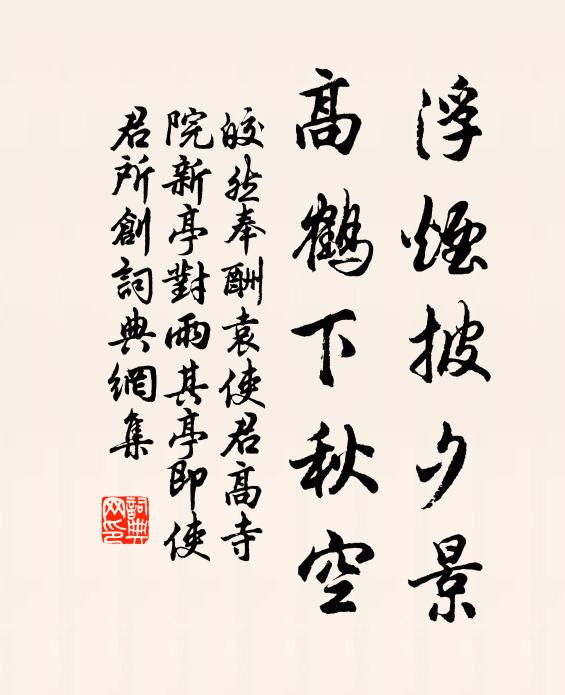 浮煙披夕景
高鶴下秋空
皎然奉酬袁使君高寺
院新亭對雨其亭即使
君所創詞典網集
詞典網印